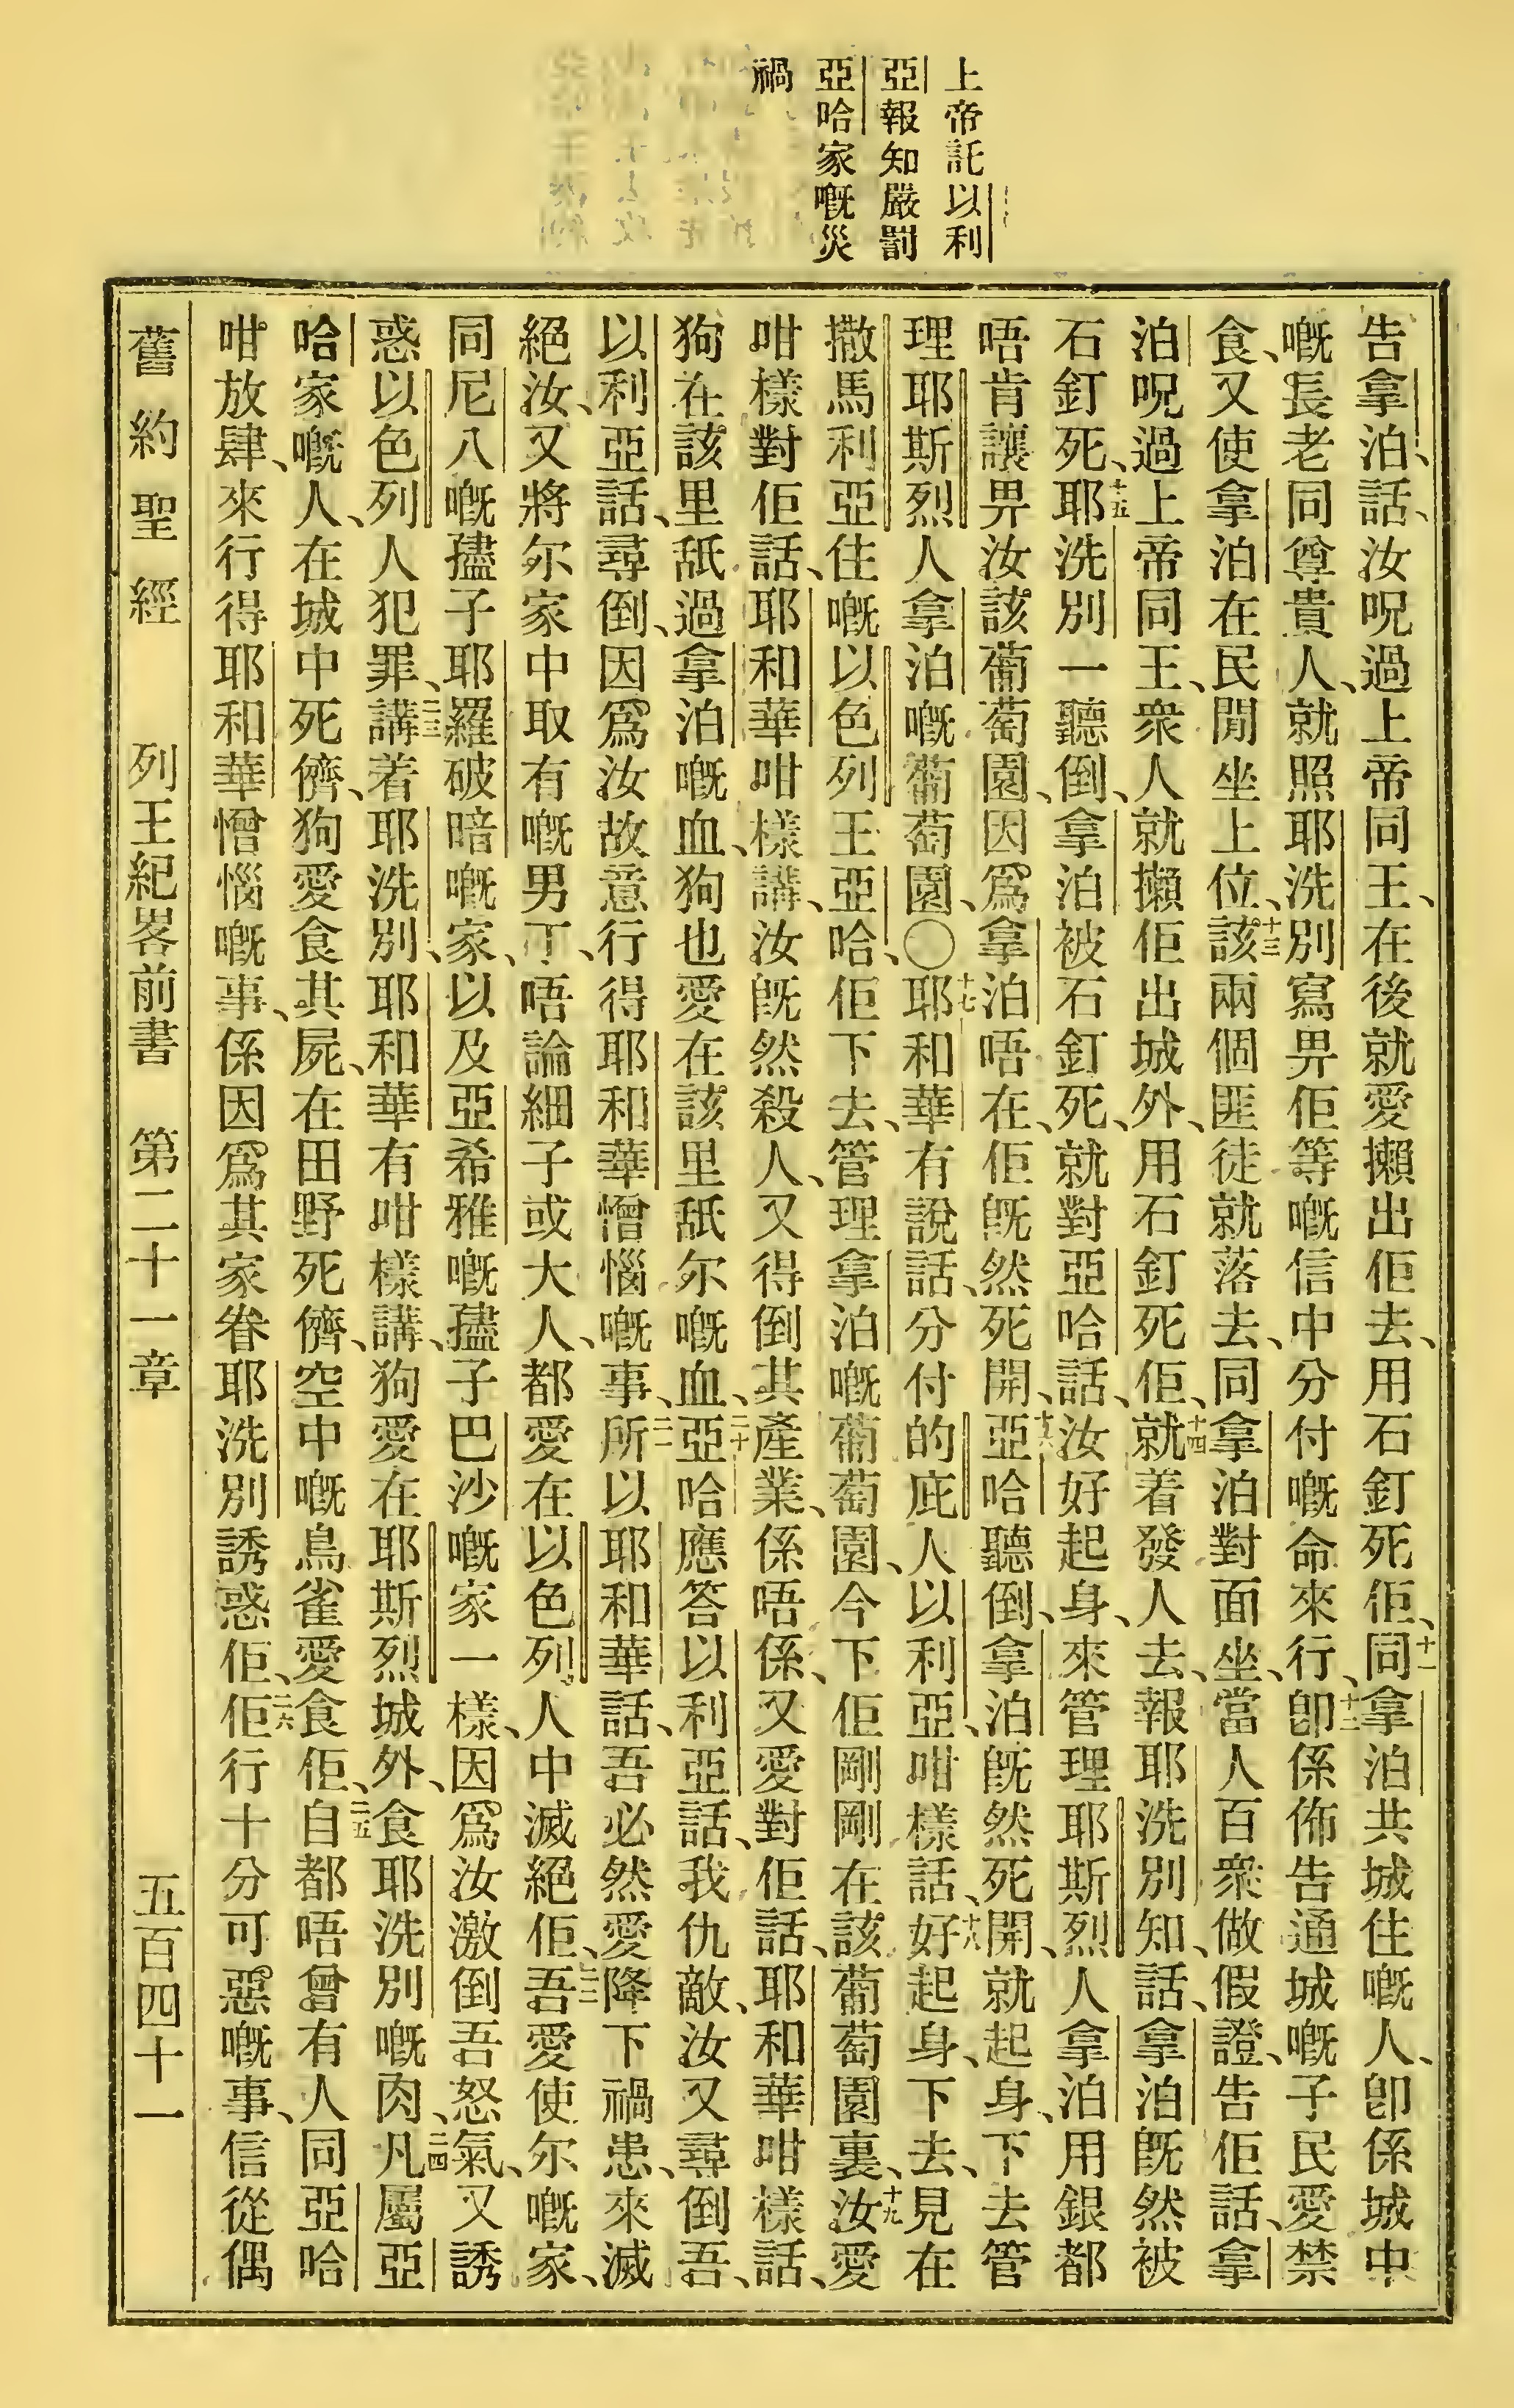 上帝託以利
亞報知嚴罰
亞哈家嘅災
禍
告拿泊、話、汝呪過上帝同王、在後就愛擸出佢去、用石釘死佢、十一同拿泊共城住嘅人、卽係城中
嘅長老同尊貴人、就照耶洗別寫畀佢等嘅信中分付嘅命來行、十二卽係佈告通城嘅子民愛禁
食、又使拿泊在民閒坐上位、十三該兩個匪徒就落去、同拿泊對面坐、當人百衆做假證、告佢話、拿
泊呪過上帝同王、衆人就擸佢出城外、用石釘死佢、十四就着發人去、報耶洗別知、話、拿泊旣然被
石釘死、十五耶洗別一聽倒、拿泊被石釘死、就對亞哈話、汝好起身、來管理耶斯烈人拿泊用銀都
唔肯讓畀汝該葡萄園、因爲拿泊唔在、佢旣然死開、十六亞哈聽倒、拿泊旣然死開、就起身、下去管
理耶斯烈人拿泊嘅葡萄園、〇十七耶和華有說話、分付的庇人以利亞、咁樣話、十八好起身、下去、見在
撒馬利亞住嘅以色列王亞哈、佢下去、管理拿泊嘅葡萄園、今下佢剛剛在該葡萄園裏、十九汝愛
咁樣對佢話、耶和華咁樣講、汝旣然殺人、又得倒其產業、係唔係、又愛對佢話、耶和華咁樣話、
狗在該里舐過拿泊嘅血、狗也愛在該里舐尔嘅血、二十亞哈應答以利亞話、我仇敵、汝又尋倒吾、
以利亞話、尋倒、因爲汝故意行得耶和華憎惱嘅事、二一所以耶和華話、吾必然愛降下禍患、來滅
絕汝、又將尔家中取有嘅男丁、唔論細子或大人、都愛在以色列人中滅絕佢、二二吾愛使尔嘅家、
同尼八嘅孻子耶羅破暗嘅家、以及亞希雅嘅孻子巴沙嘅家一樣、因爲汝激倒吾怒氣、又誘
惑以色列人犯罪、二三講着耶洗別、耶和華有咁樣講、狗愛在耶斯烈城外、食耶洗別嘅肉、二四凡屬亞
哈家嘅人、在城中死儕、狗愛食其屍、在田野死儕、空中嘅鳥雀愛食佢、二五自都唔曾有人同亞哈
咁放肆、來行得耶和華憎惱嘅事、係因爲其家眷耶洗別誘惑佢、二六佢行十分可惡嘅事、信從偶
舊約聖經 列王紀畧前書 第二十一章 五百四十一